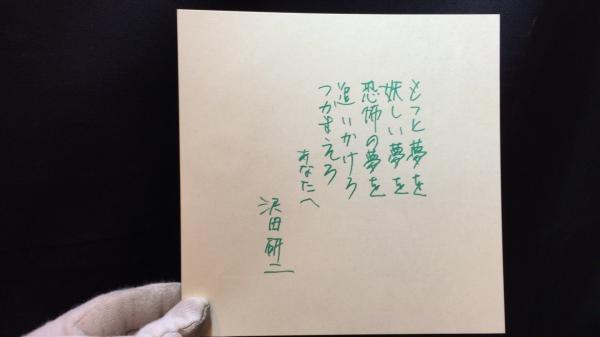 もっと夢を
妖しい夢を
恐怖の夢を
追いかけろ
つかまえろ
あなたへ
沢田研二